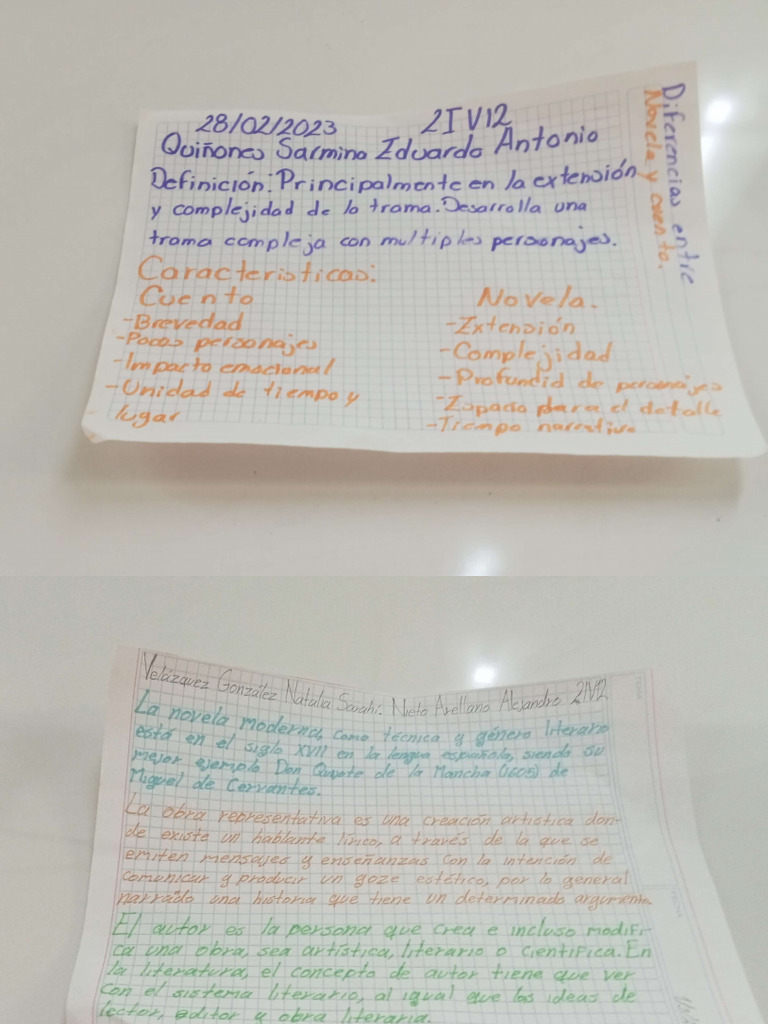 28/02/2023 2IV12
Quiñones Sarmino Eduardo Antonio
Definición: Principalmente en la extensión
y complejidad de la trama. Desarrolla una
trama compleja con multiples personajes.
Diferencias entre
Novela y cuento.
Caracteristicas:
Cuento
-Brevedad
-Pocos personajes
-Impacto emocional
-Unidad de tiempo y
lugar
Novela.
-Extensión
-Complejidad
-Profundid de personajes
-Espacio para el detalle
-Tiempo narrativo
Velázquez González Natalia Sarahi. Nieto Arellano Alejandro 2IV12
La novela moderna, como técnica y género literario
está en el siglo XVII en la lengua española, siendo su
mejor ejemplo Don Quijote de la Mancha (1605) de
Miguel de Cervantes.
La obra representativa es una creación artística don-
de existe un hablante lírico, a través de la que se
emiten mensajes y enseñanzas con la intención de
comunicar y producir un goze estético, por lo general
narrado una historia que tiene un determinado argumento.
El autor es la persona que crea e incluso modifi-
ca una obra, sea artística, literario o científica. En
la literatura, el concepto de autor tiene que ver
con el sistema literario, al igual que las ideas de
lector, editor y obra literaria.